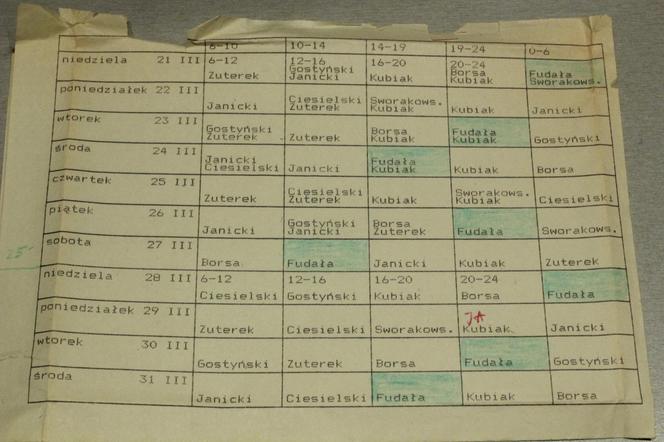 6-10 10-14 14-19 19-24 0-6
niedziela 21 III 6-12 12-16 16-20 20-24
Gostyński Borsa Fudała
Zuterek Janicki Kubiak Kubiak Sworakows.
poniedziałek 22 III
Ciesielski Sworakows.
Janicki Zuterek Kubiak Kubiak Janicki
wtorek 23 III
Gostyński Borsa Fudała
Zuterek Zuterek Kubiak Kubiak Gostyński
środa 24 III
Janicki Fudała
Ciesielski Janicki Kubiak Kubiak Borsa
czwartek 25 III
Ciesielski Sworakows.
Zuterek Zuterek Kubiak Kubiak Ciesielski
piątek 26 III
Gostyński Borsa
Janicki Janicki Zuterek Fudała Sworakows.
sobota 27 III
25'
Borsa Fudała Janicki Kubiak Zuterek
niedziela 28 III 6-12 12-16 16-20 20-24
Ciesielski Gostyński Kubiak Borsa Fudała
poniedziałek 29 III
JA
Zuterek Ciesielski Sworakows. Kubiak Janicki
wtorek 30 III
Gostyński Zuterek Borsa Fudała Gostyński
środa 31 III
Janicki Ciesielski Fudała Kubiak Borsa